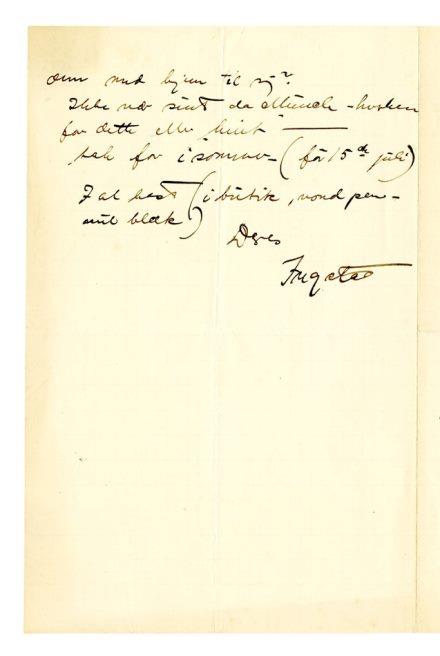 dem med hjem til sig?
Ikke vær sint da Munch – hverken
for dette eller hint
tak for i sommer – (før 15de juli)
I al hast (i butik, vond pen –
mit blæk)
Deres